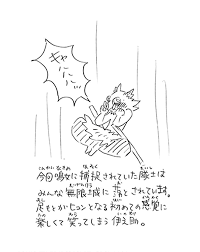 ギャハハハ…
今回鳴女に捕捉されていた隊士は
みんな無限城に落とされています。
足もとがヒュンとなる初めての感覚に
楽しくて笑ってしまう伊之助。